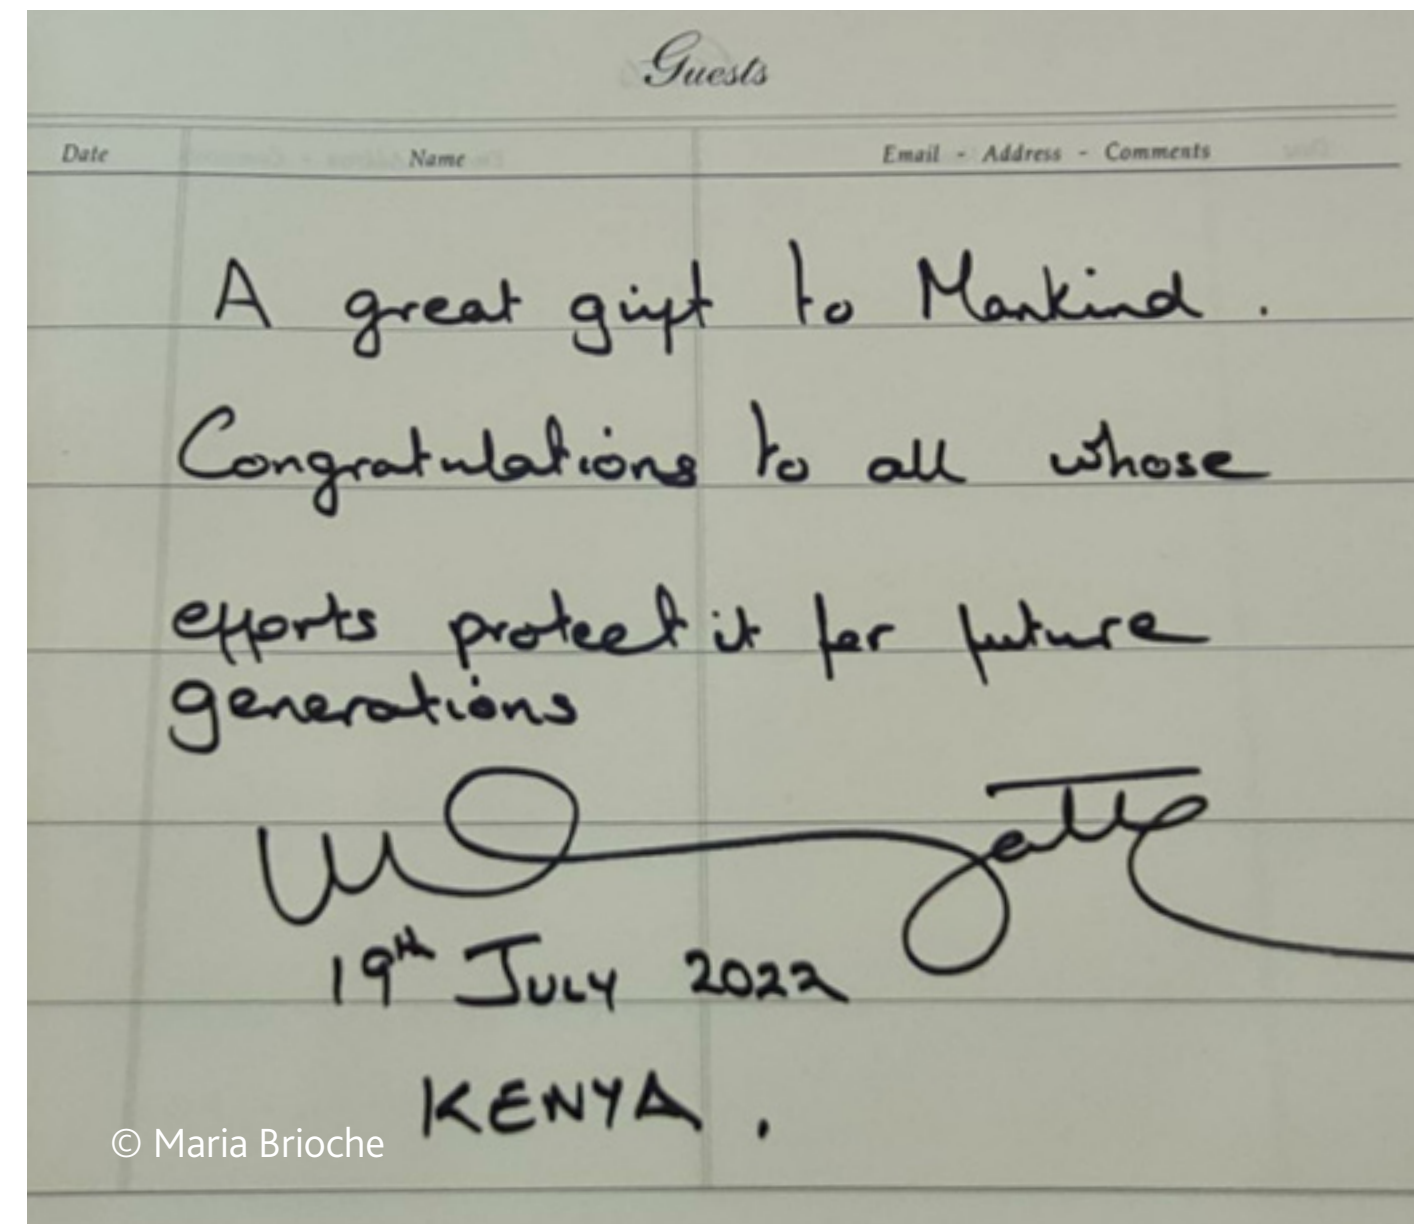 Guests
Date Name Email - Address - Comments
A great guift to Mankind.
Congratulations to all whose
efforts protect it for future
generations
19th JULY 2022
KENYA.
© Maria Brioche